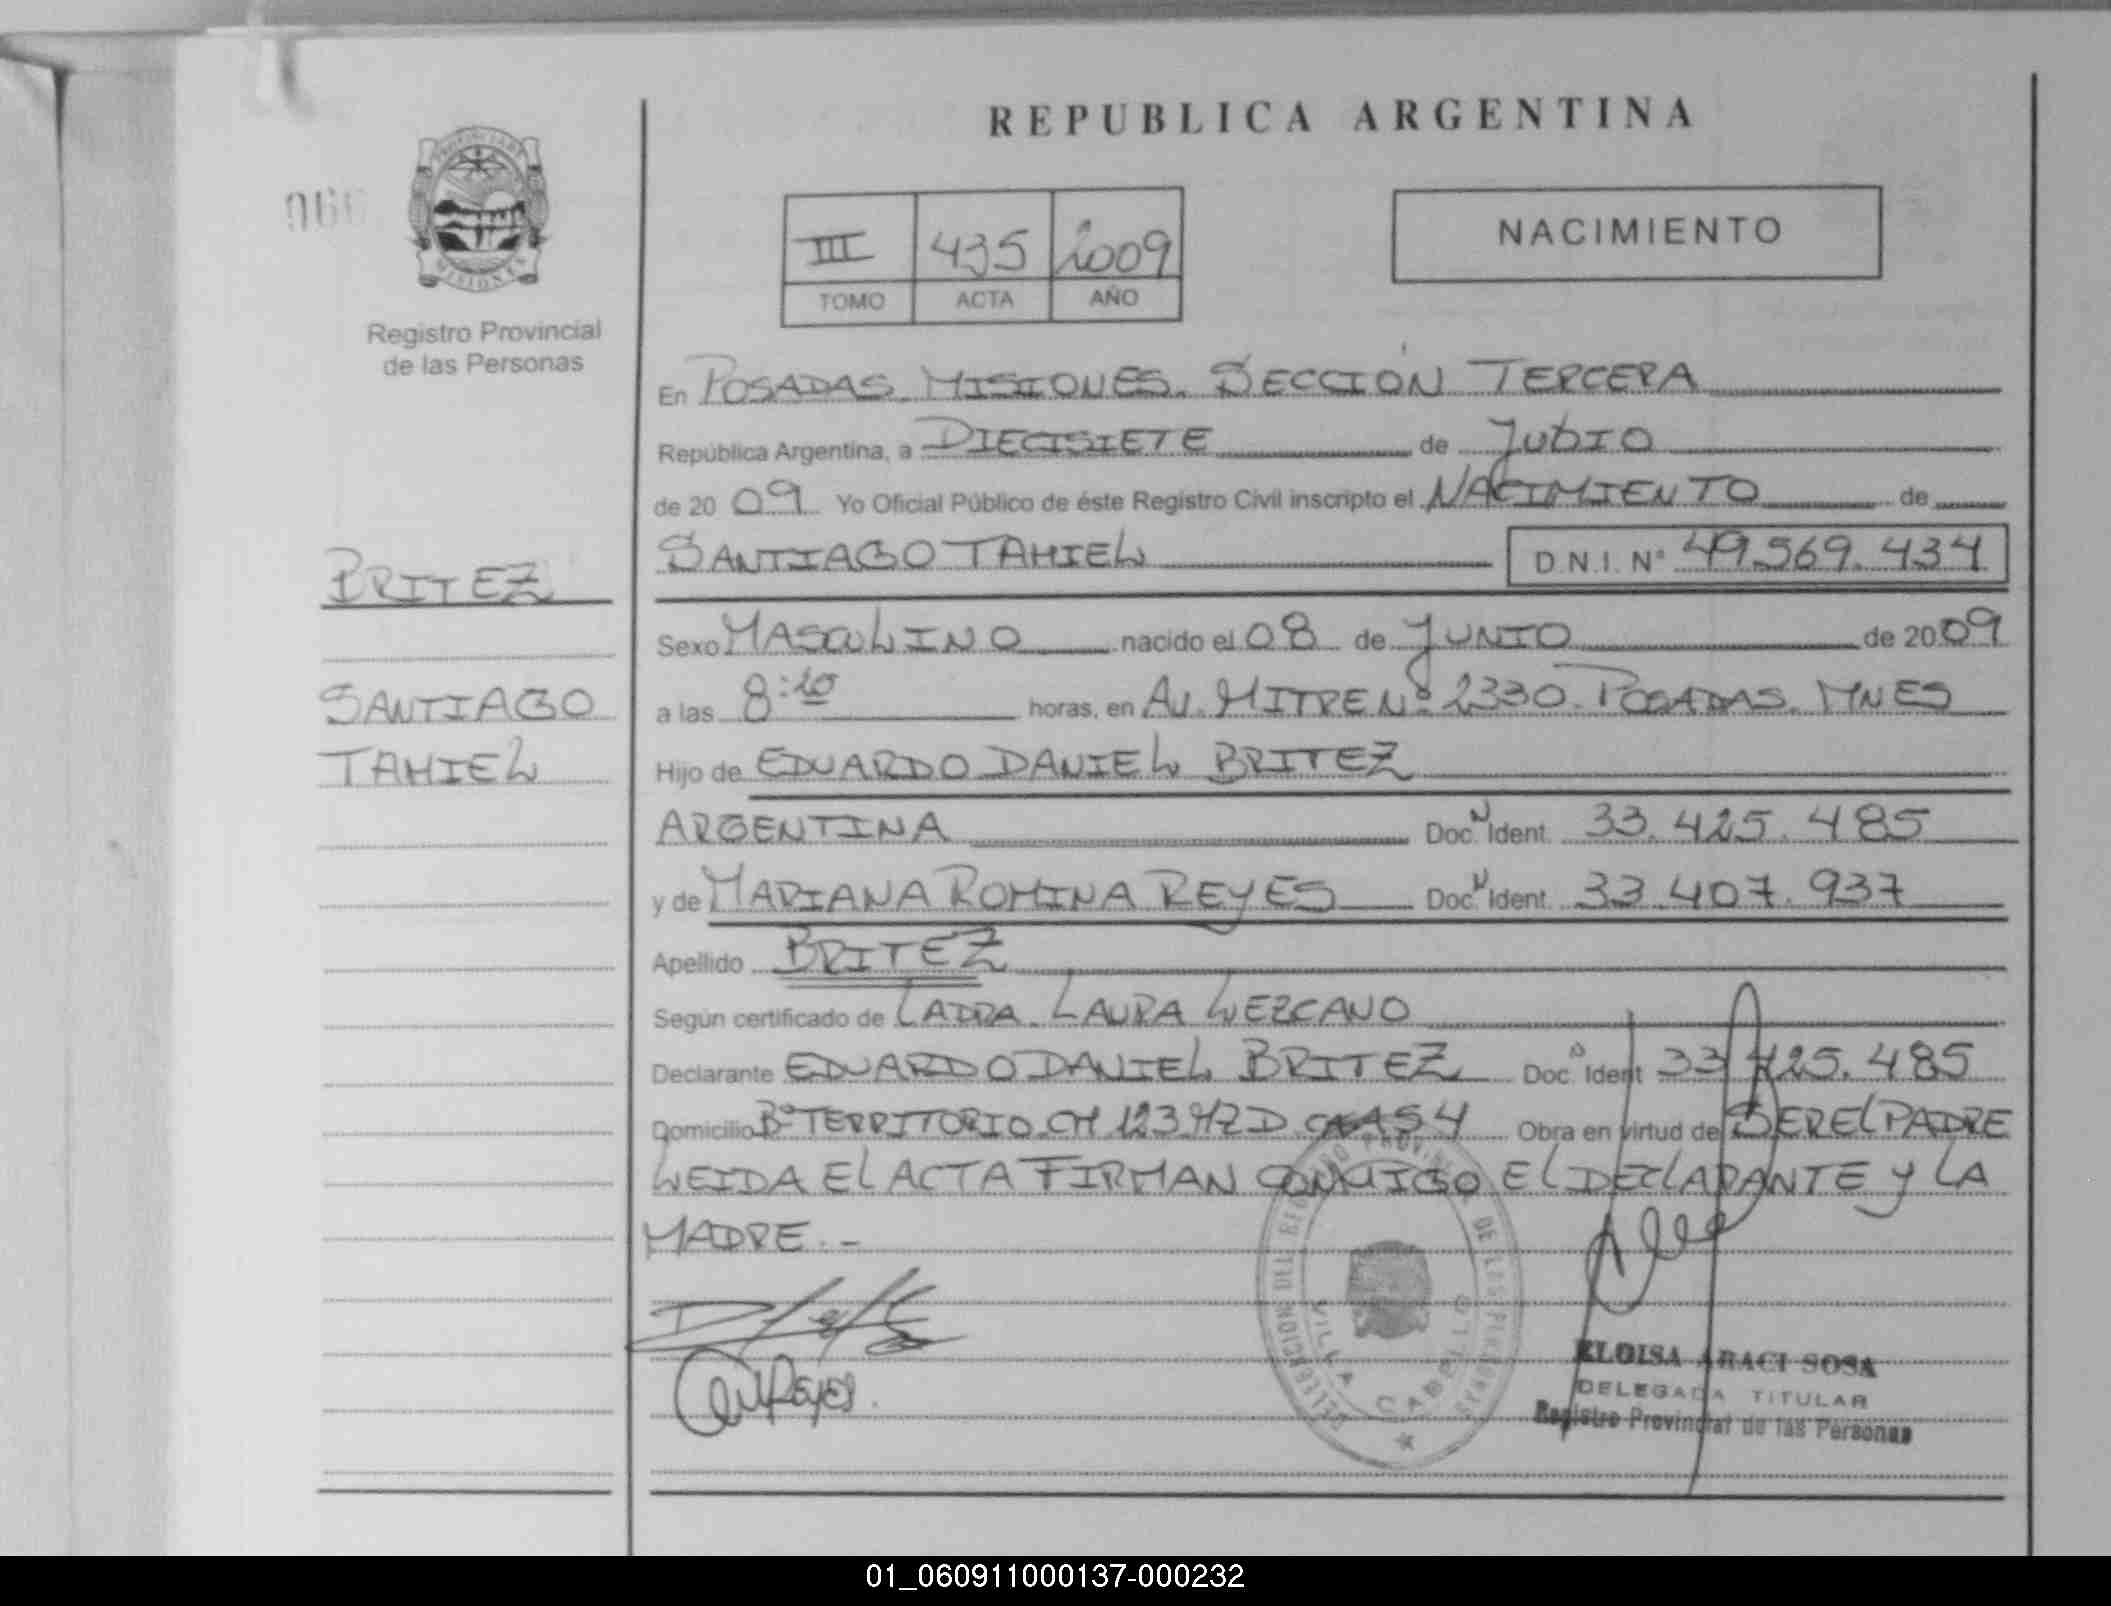 REPUBLICA ARGENTINA
PROVINCIA DE MISIONES
Registro Provincial
de las Personas
III 435 2009
TOMO ACTA AÑO
NACIMIENTO
En POSADAS. MISIONES. SECCIÓN TERCERA
República Argentina, a DIECISIETE de JULIO
de 20 09 Yo Oficial Público de éste Registro Civil inscripto el NACIMIENTO de
SANTIAGO TAHIEL D.N.I. Nº 49.569.434
BRITEZ
SANTIAGO
TAHIEL
Sexo MASCULINO nacido el 08 de JUNIO de 20 09
a las 8:10 horas, en AV. MITRE Nº 2330. POSADAS. MNES
Hijo de EDUARDO DANIEL BRITEZ
ARGENTINA Doc. N Ident. 33.425.485
y de MARIANA ROMINA REYES Doc. N Ident. 33.407.937
Apellido BRITEZ
Según certificado de LA DRA. LAURA LEZCANO
Declarante EDUARDO DANIEL BRITEZ Doc. N Ident 33.425.485
Domicilio Bº TERRITORIO. CH 123 MZ D CASA 4 Obra en virtud de SER EL PADRE
LEIDA EL ACTA FIRMAN CONMIGO EL DECLARANTE Y LA
MADRE.-
DELEGACION DEL REGISTRO PROVINCIAL DE LAS PERSONAS
VILLA CABELLO
Reyes
ELOISA ARACI SOSA
DELEGADA TITULAR
Registro Provincial de las Personas
01_060911000137-000232